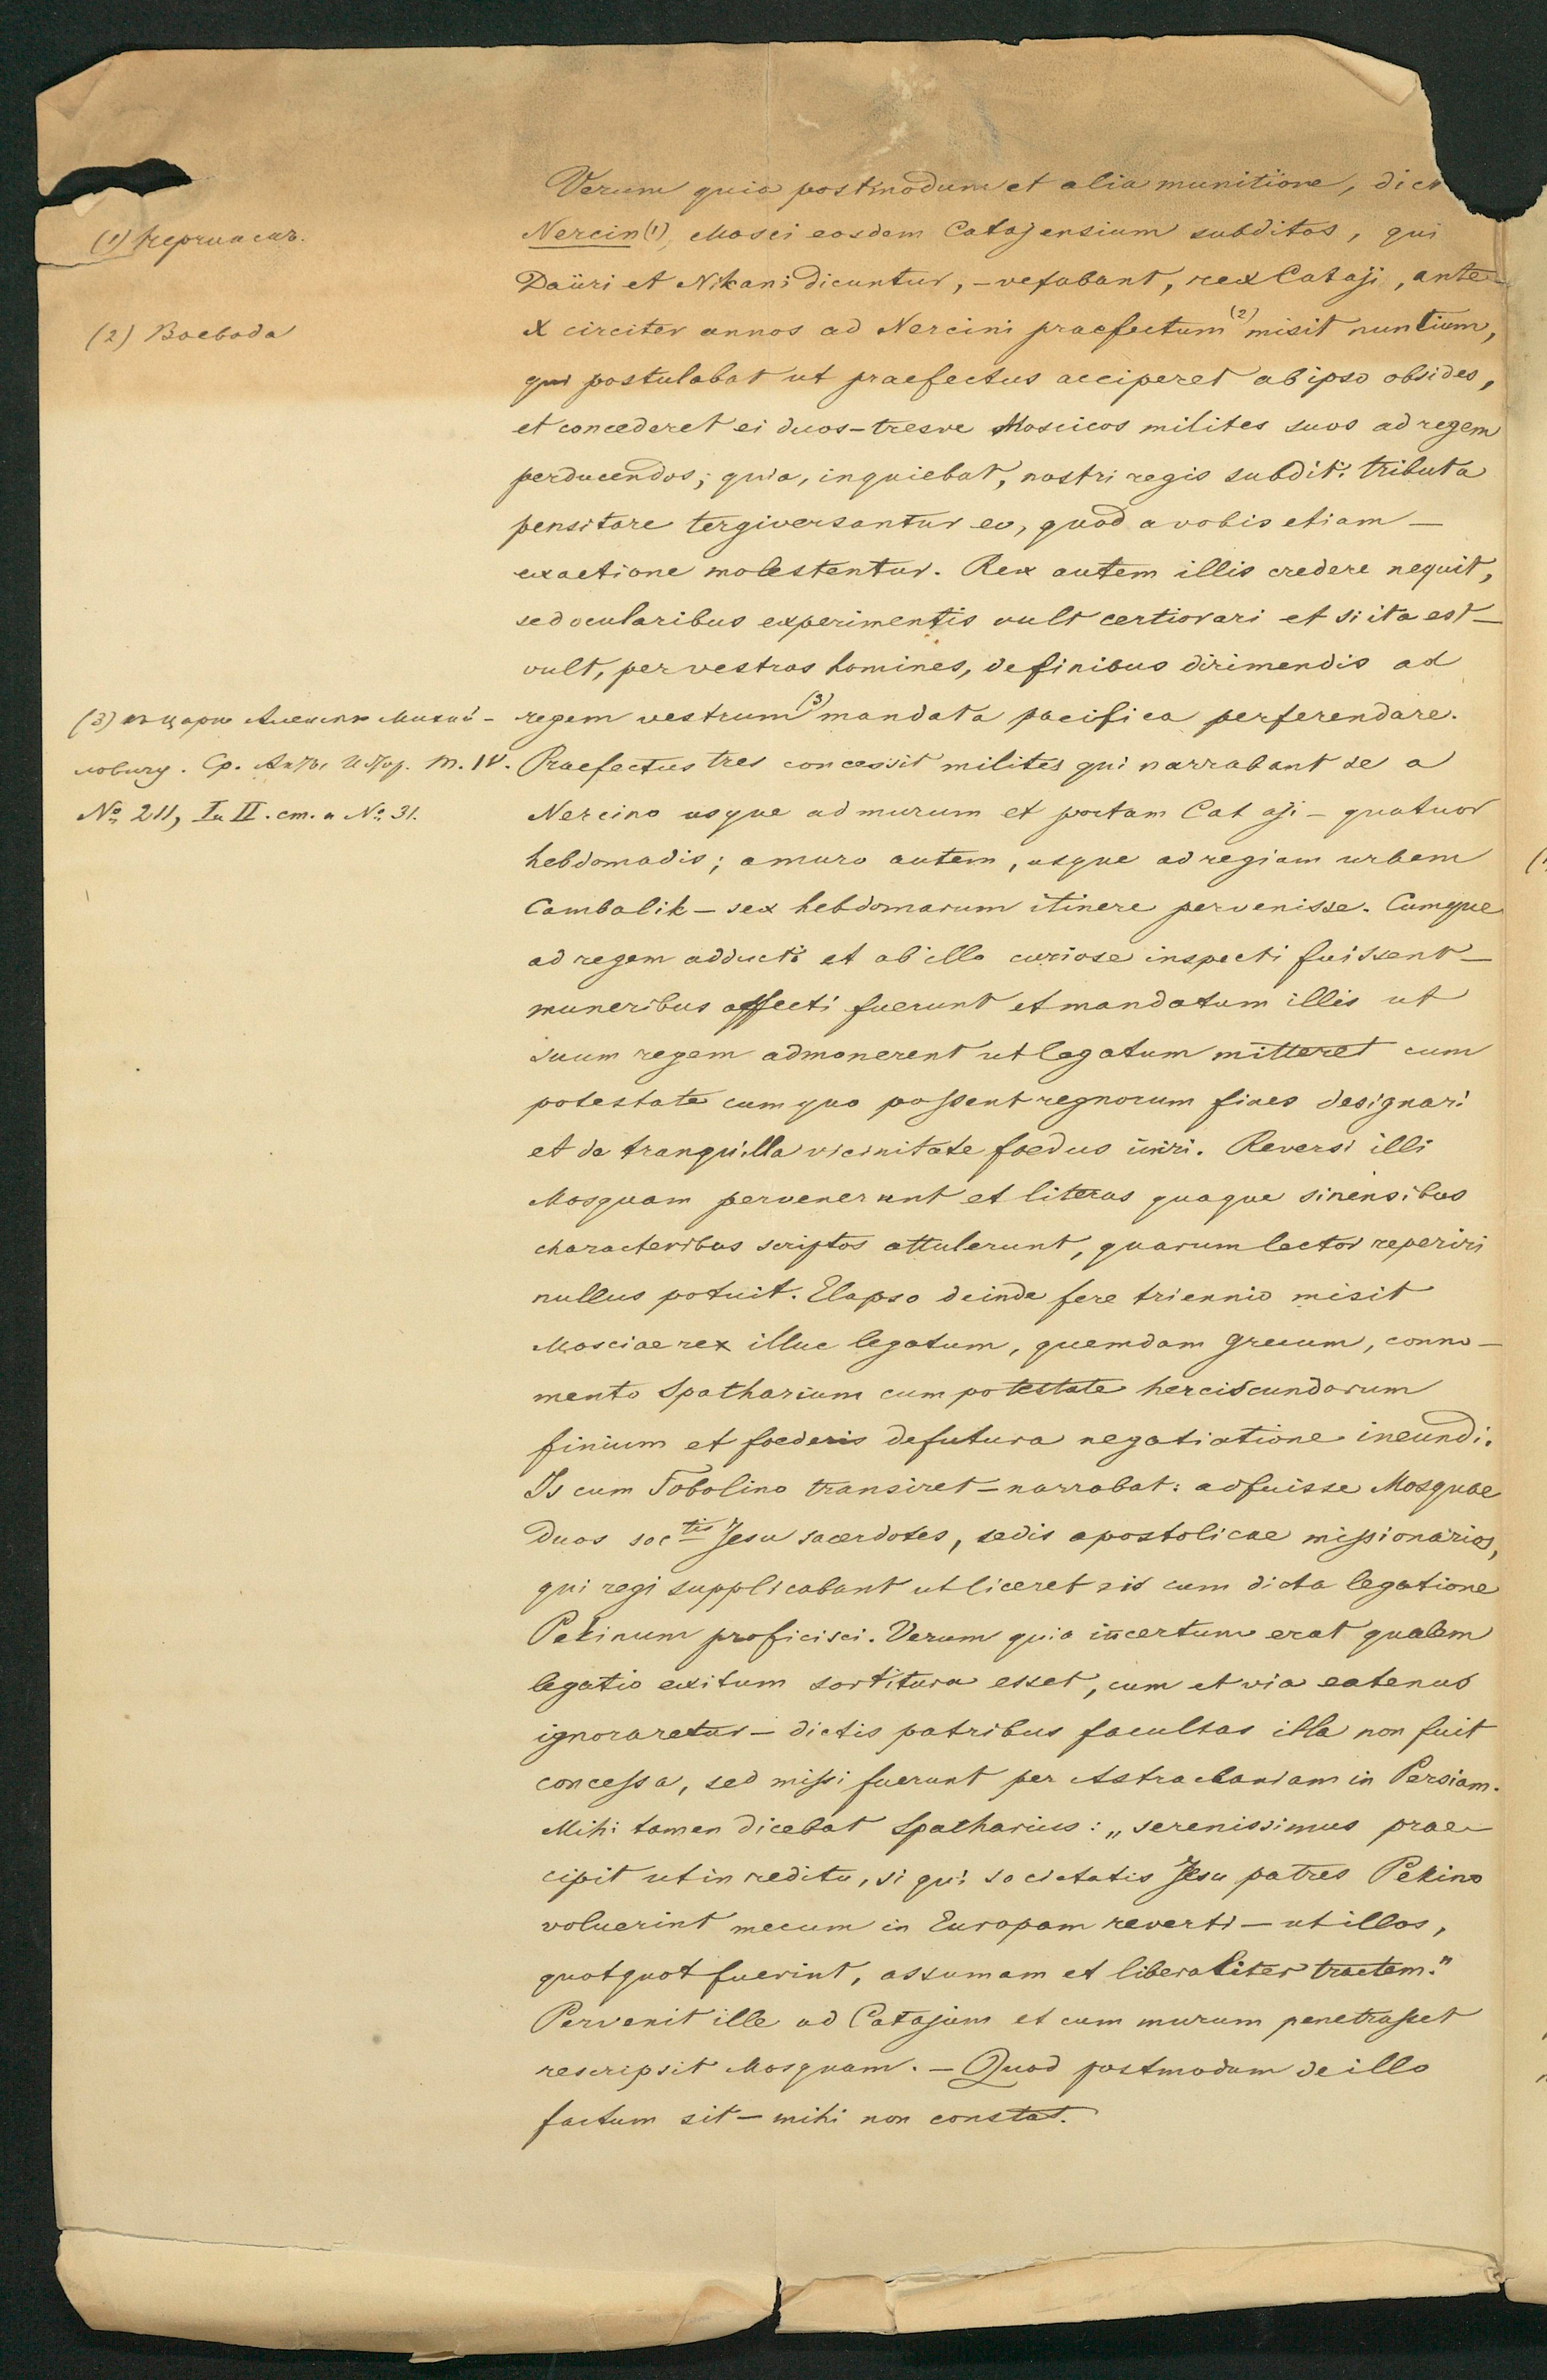 Verum quia postmodum et alia munitione, dict
(1) Нерчинскъ.
Nercin (1), Mosci eosdem Catajensium subditos, qui
Daüri et Nikani dicuntur, – vexabant, rex Cataji, ante
(2) Воевода
X circiter annos ad Nercini praefectum (2) misit nuntium,
qui postulabat ut praefectus acciperet ab ipso obsides,
et concederet ei duos-tresve Moscicos milites suos ad regem
perducendos; quia, inquiebat, nostri regis subditi tributa
pensitare tergiversantur eo, quod a vobis etiam –
exactione molestentur. Rex autem illis credere nequit,
sed ocularibus experimentis vult certiorari et si ita est –
vult, per vestros homines, de finibus dirimendis ad
(3) къ царю Алексѣю Михай-
regem vestrum (3) mandata pacifica perferendare.
ловичу. Ср. Акты Истор. т. IV.
Praefectus tres concessit milites qui narrabant se a
№ 211, I и II. ст. и № 31.
Nercino usque ad murum et portam Cataji – quatuor
hebdomadis; a muro autem, usque ad regiam urbem
Cambalik – sex hebdomarum itinere pervenisse. Cumque
ad regem adducti et ab illo curiose inspecti fuissent –
muneribus affecti fuerunt et mandatum illis ut
suum regem admonerent ut legatum mitteret cum
potestate cum quo possent regnorum fines designari
et de tranquilla vicinitate foedus iniri. Reversi illi
Mosquam pervenerunt et literas quoque sinensibus
characteribus scriptas attulerunt, quarum lector reperiri
nullus potuit. Elapso deinde fere triennio misit
Mosciae rex illuc legatum, quemdam Grecum, conno-
mento Spatharium cum potestate herciscundorum
finium et foederis de futura negatiatione ineundi.
Is cum Tobolino transiret – narrabat: adfuisse Mosquae
duos soctis Jesu sacerdotes, sedis apostolicae missionarios,
qui regi supplicabant ut liceret eis cum dicta legatione
Pekinum proficisci. Verum quia incertum erat qualem
legatio exitum sortitura esset, cum et via eatenus
ignoraretur – dictis patribus facultas illa non fuit
concessa, sed missi fuerunt per Astrachaniam in Persiam.
Mihi tamen dicebat Spatharius: „serenissimus prae-
cipit ut in reditu, si qui societatis Jesu patres Pekino
voluerint mecum in Europam reverti – ut illos,
quotquot fuerint, assumam et liberaliter tractem."
Pervenit ille ad Catajum et cum murum penetrasset
rescripsit Mosquam. – Quod postmodum de illo
factum sit – mihi non constat.